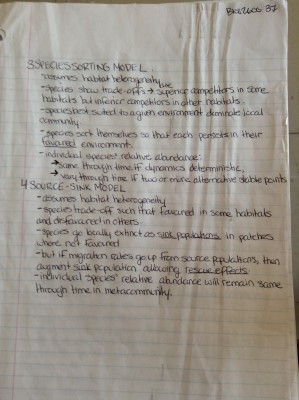 BIOL2606 37
3. SPECIES SORTING MODEL
-assumes habitat heterogeneity
-species show trade-offs → superior competitors in some
habitats but inferior competitors in other habitats.
-species best suited to a given environment dominate local
community.
-species sort themselves so that each persists in their
favoured environment.
-individual species' relative abundance:
→ same through time if dynamics deterministic,
→ vary through time if two or more alternative stable points
4. SOURCE-SINK MODEL
-assumes habitat heterogeneity
-species trade-off such that favoured in some habitats
and disfavoured in others
-species go locally extinct as sink populations in patches
where not favoured
-but if migration rates go up from source populations, then
augment sink population allowing rescue effects
-individual species' relative abundance will remain same
through time in metacommunity.